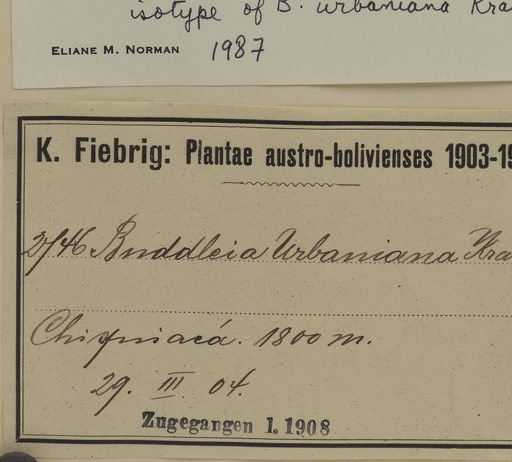 isotype of B. urbaniana Kra
ELIANE M. NORMAN 1987
K. Fiebrig: Plantae austro-bolivienses 1903-19
2746 Buddleia Urbaniana Kra
Chiquiacá. 1800 m.
29. III 04.
Zugegangen I. 1908